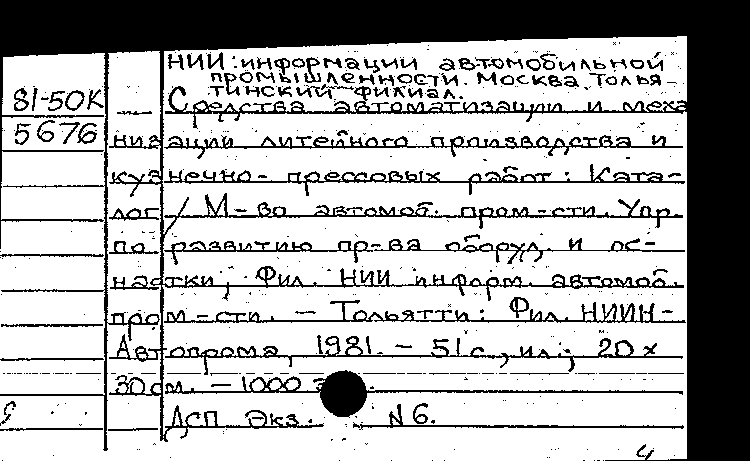 НИИ информации автомобильной
промышленности. Москва. Толья-
тинский филиал.
81-50К
Средства автоматизации и меха
5676
низации литейного производства и
кузнечно-прессовых работ: Ката-
лог / М-во автомоб. пром-сти. Упр.
по развитию пр-ва оборуд. и ос-
настки, Фил. НИИ информ. автомоб.
пром-сти. – Тольятти: Фил. НИИН-
Автопрома, 1981. – 51 с., ил.; 20 х
30 см. – 1000
ДСП Экз. N 6.
4